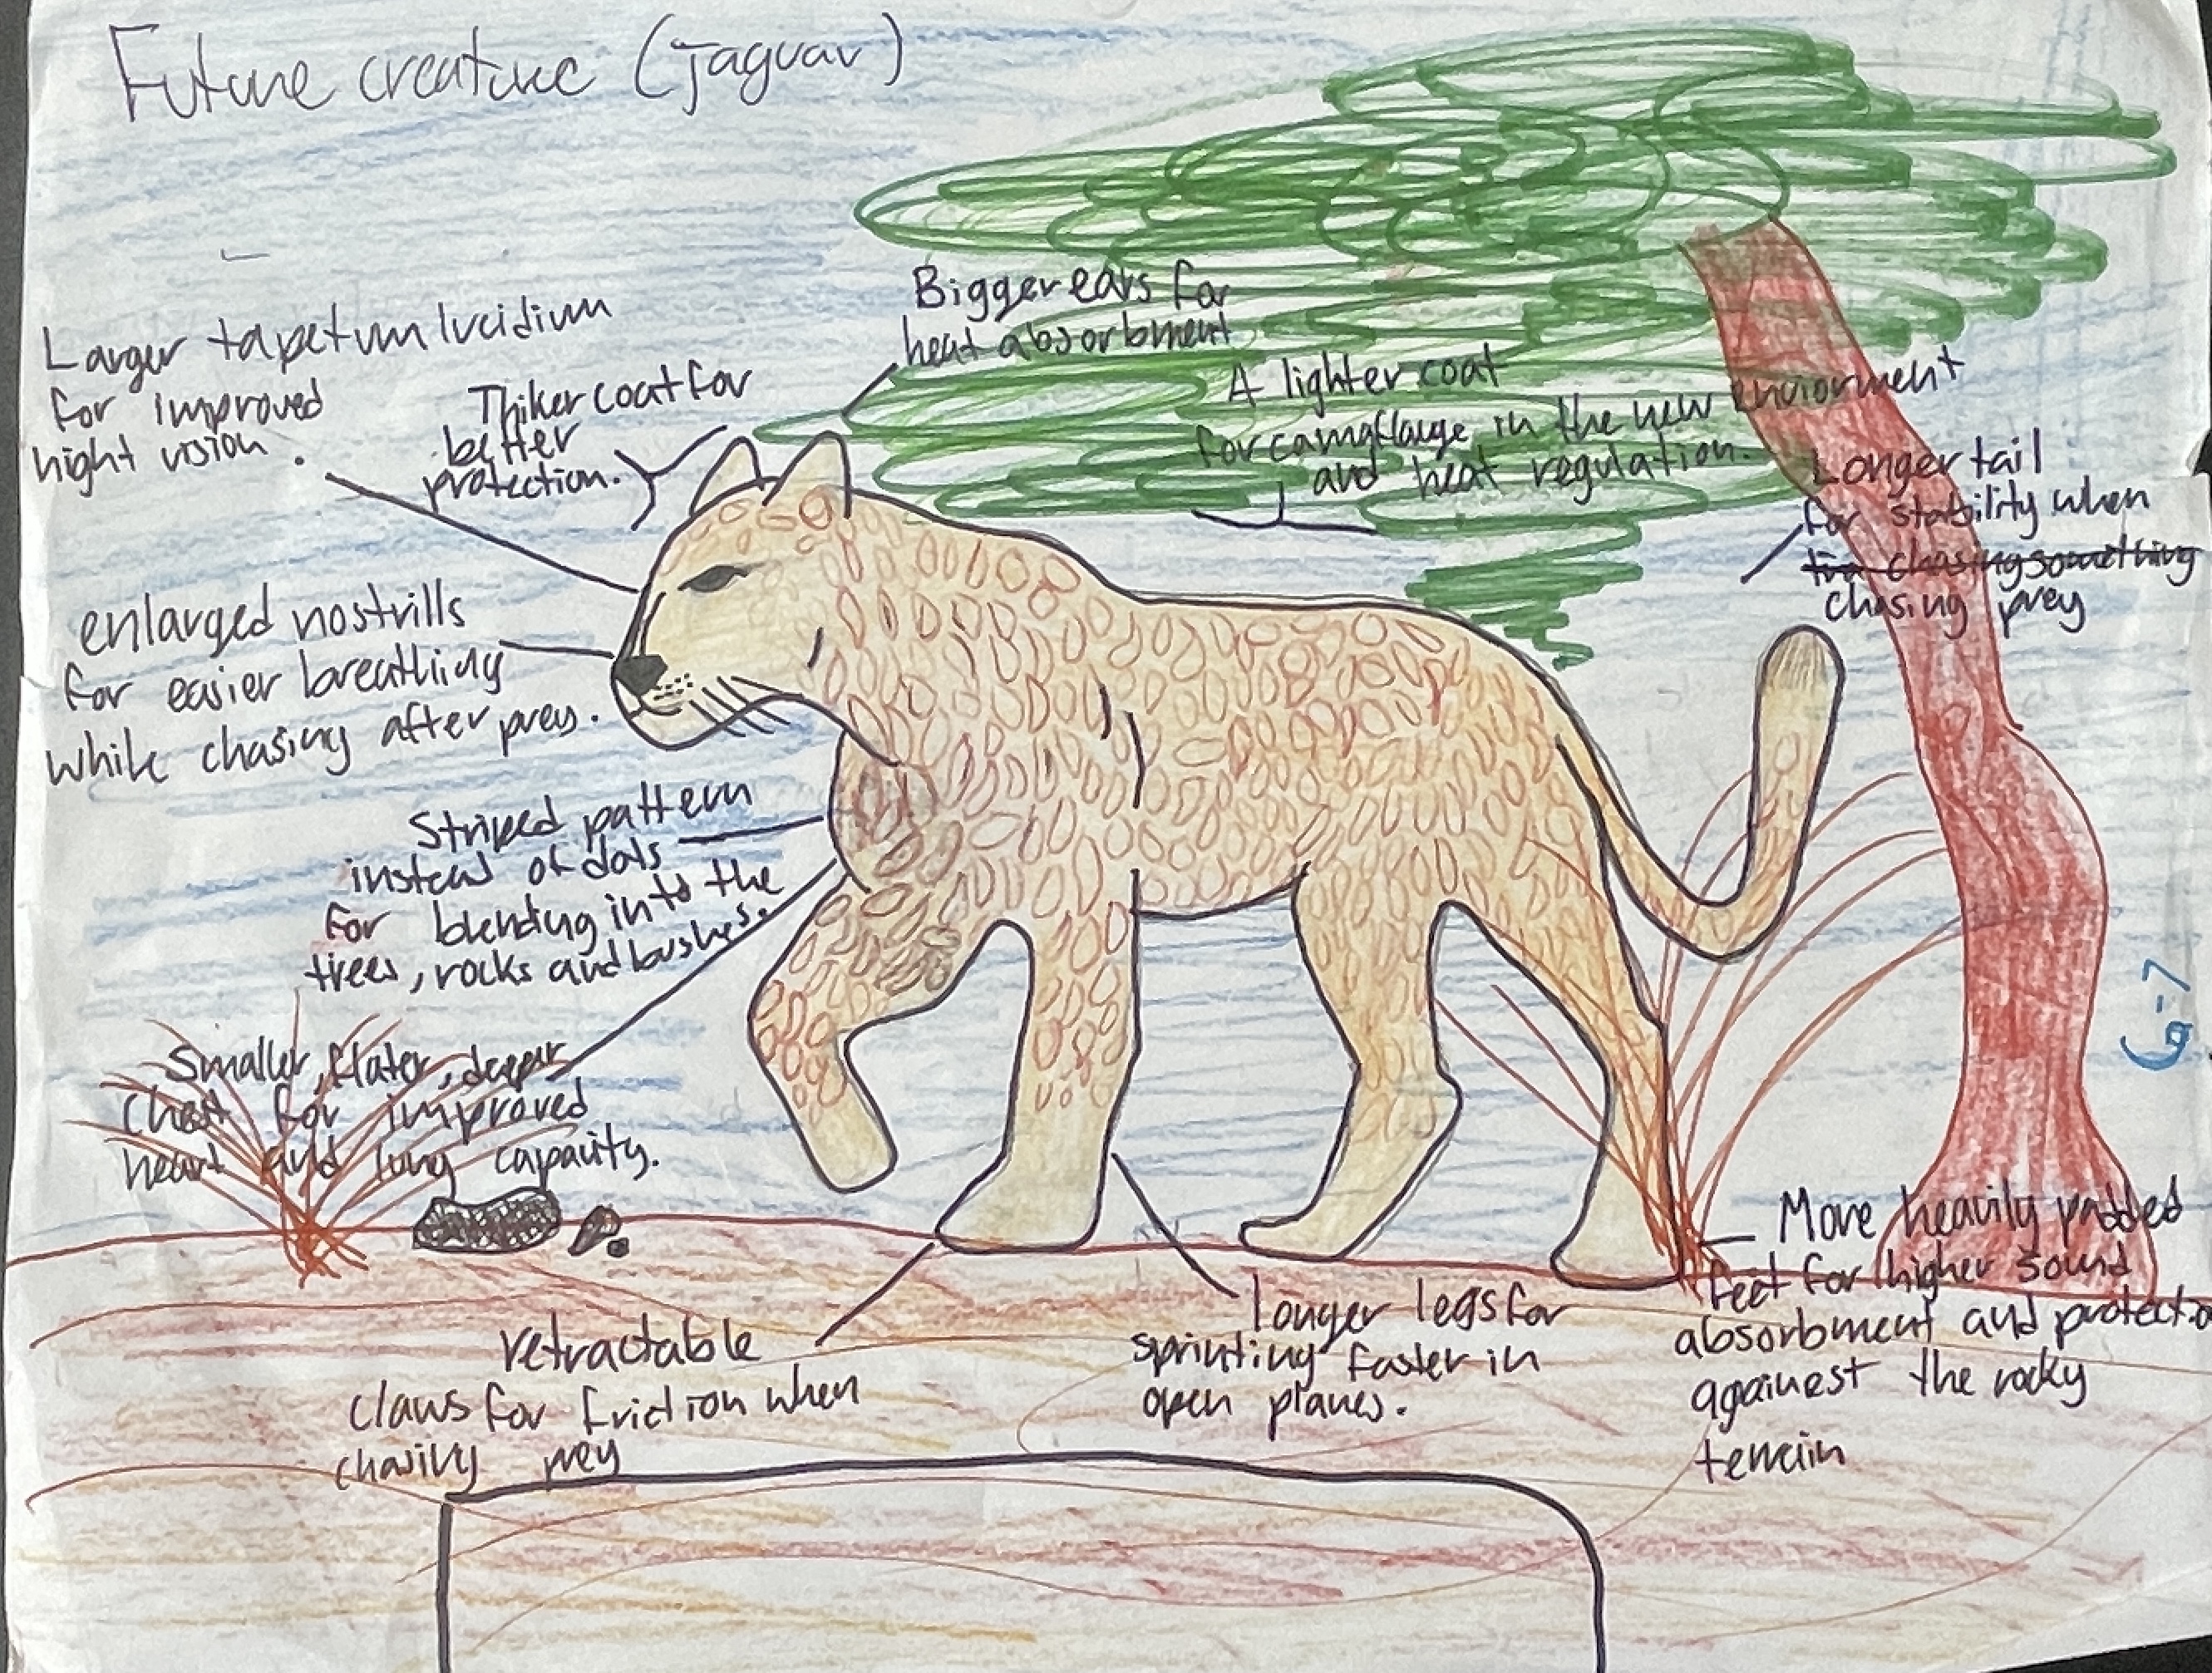 Future creature (jaguar)
Bigger ears for
heat absorbment
Larger tapetum lucidium
for improved
night vision.
Thiker coat for
better
protection.
A lighter coat
for camoflauge in the new enviorment
and heat regulation.
Longer tail
for stability when
chasing something
chasing prey
enlarged nostrills
for easier breathing
while chasing after prey.
Striped pattern
instead of dots
for blending into the
trees, rocks and bushes.
Smaller, flater, deeper
chest for improved
heart and lung capacity.
G-7
More heavily padded
feet for higher sound
absorbment and protectio
againest the rocky
terrain
retractable
claws for friction when
chasing prey
longer legs for
sprinting faster in
open planes.